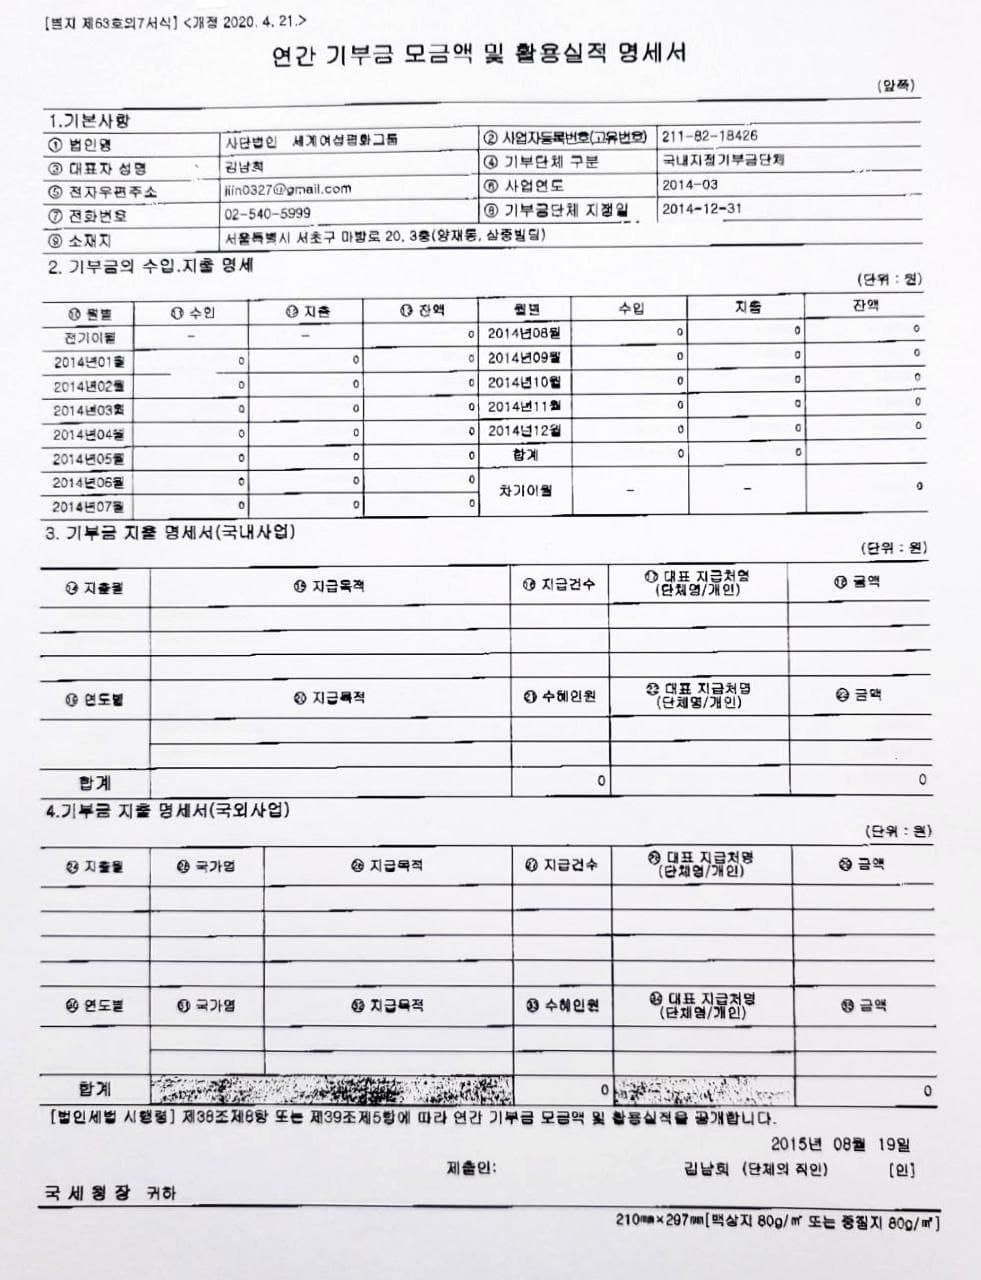 [별지 제63호의7서식] <개정 2020. 4. 21.>
연간 기부금 모금액 및 활용실적 명세서
(앞쪽)
1.기본사항
① 법인명 사단법인 세계여성평화그룹 ② 사업자등록번호(고유번호) 211-82-18426
③ 대표자 성명 김남희 ④ 기부단체 구분 국내지정기부금단체
⑤ 전자우편주소 jiin0327@gmail.com ⑥ 사업연도 2014-03
⑦ 전화번호 02-540-5999 ⑧ 기부금단체 지정일 2014-12-31
⑨ 소재지 서울특별시 서초구 마방로 20, 3층(양재동, 삼중빌딩)
2. 기부금의 수입.지출 명세
(단위 : 원)
⑩ 월별 ⑪ 수입 ⑫ 지출 ⑬ 잔액 월별 수입 지출 잔액
전기이월 – – 0 2014년08월 0 0 0
2014년01월 0 0 0 2014년09월 0 0 0
2014년02월 0 0 0 2014년10월 0 0 0
2014년03월 0 0 0 2014년11월 0 0 0
2014년04월 0 0 0 2014년12월 0 0 0
2014년05월 0 0 0 합계 0 0 0
2014년06월 0 0 0 차기이월 – – 0
2014년07월 0 0 0
3. 기부금 지출 명세서(국내사업)
(단위 : 원)
⑭ 지출월 ⑮ 지급목적 ⑯ 지급건수 ⑰ 대표 지급처명 ⑱ 금액
(단체명/개인)
⑲ 연도별 ⑳ 지급목적 ㉑ 수혜인원 ㉒ 대표 지급처명 ㉓ 금액
(단체명/개인)
합계 0 0
4.기부금 지출 명세서(국외사업)
(단위 : 원)
㉔ 지출월 ㉕ 국가명 ㉖ 지급목적 ㉗ 지급건수 ㉘ 대표 지급처명 ㉙ 금액
(단체명/개인)
㉚ 연도별 ㉛ 국가명 ㉜ 지급목적 ㉝ 수혜인원 ㉞ 대표 지급처명 ㉟ 금액
(단체명/개인)
합계 0 0
[법인세법 시행령] 제38조제8항 또는 제39조제5항에 따라 연간 기부금 모금액 및 활용실적을 공개합니다.
2015년 08월 19일
제출인: 김남희 (단체의 직인) [인]
국세청장 귀하
210㎜×297㎜[백상지 80g/㎡ 또는 중질지 80g/㎡]